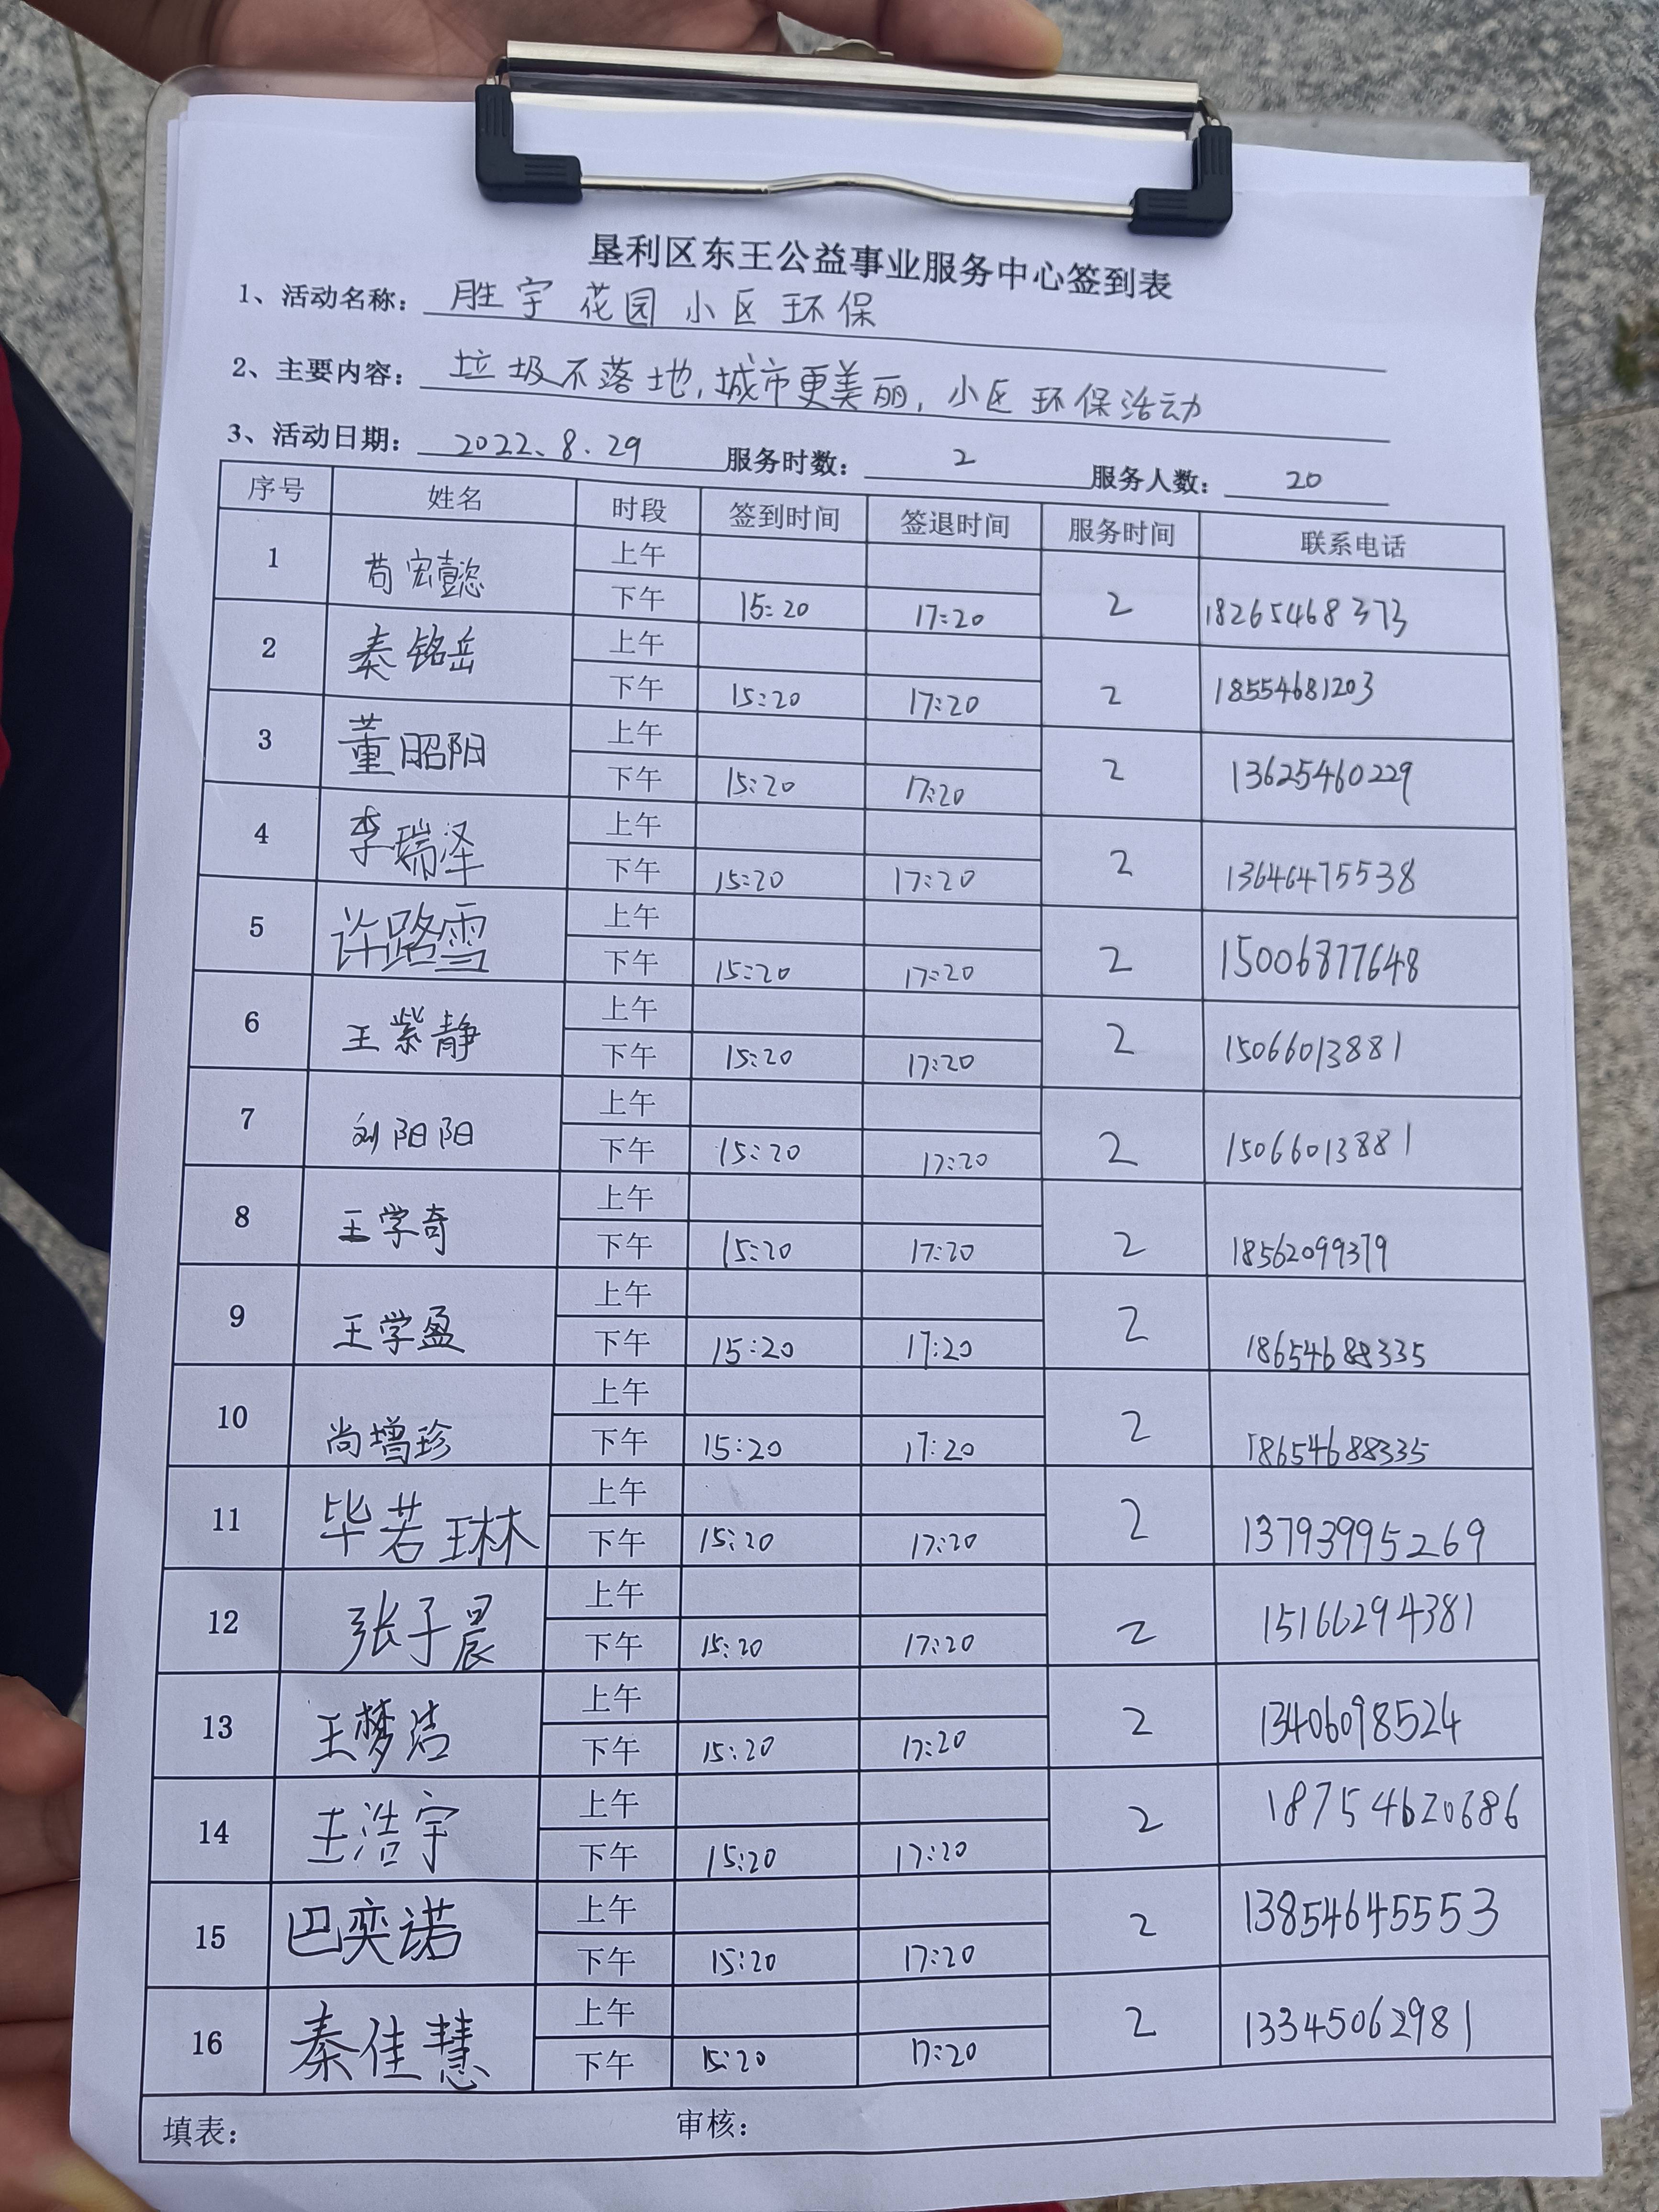 垦利区东王公益事业服务中心签到表
1、活动名称: 胜宇花园小区环保
2、主要内容: 垃圾不落地,城市更美丽,小区环保活动
3、活动日期: 2022、8.29 服务时数: 2 服务人数: 20
序号 姓名 时段 签到时间 签退时间 服务时间 联系电话
1 苟宏懿 上午
下午 15:20 17:20 2 18265468373
2 秦铭岳 上午
下午 15:20 17:20 2 18554681203
3 董昭阳 上午
下午 15:20 17:20 2 13625460229
4 李瑞泽 上午
下午 15:20 17:20 2 13646475538
5 许路雪 上午
下午 15:20 17:20 2 15006877648
6 王紫静 上午
下午 15:20 17:20 2 15066013881
7 刘阳阳 上午
下午 15:20 17:20 2 15066013881
8 王学奇 上午
下午 15:20 17:20 2 18562099379
9 王学盈 上午
下午 15:20 17:20 2 18654688335
10 尚增珍 上午
下午 15:20 17:20 2 18654688335
11 毕若琳 上午
下午 15:20 17:20 2 13793995269
12 张子晨 上午
下午 15:20 17:20 2 15166294381
13 王梦洁 上午
下午 15:20 17:20 2 13406098524
14 王浩宇 上午
下午 15:20 17:20 2 18754620686
15 巴奕诺 上午
下午 15:20 17:20 2 13854645553
16 秦佳慧 上午
下午 15:20 17:20 2 13345062981
填表: 审核: